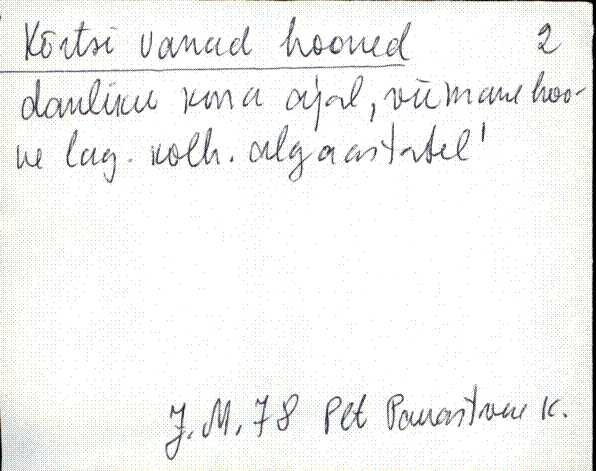 Kõrtsi vanad hooned 2
danliku korra ajal, viimane hoo-
ne lag. kolh. algaastatel'
J. M. 78 Plt k.